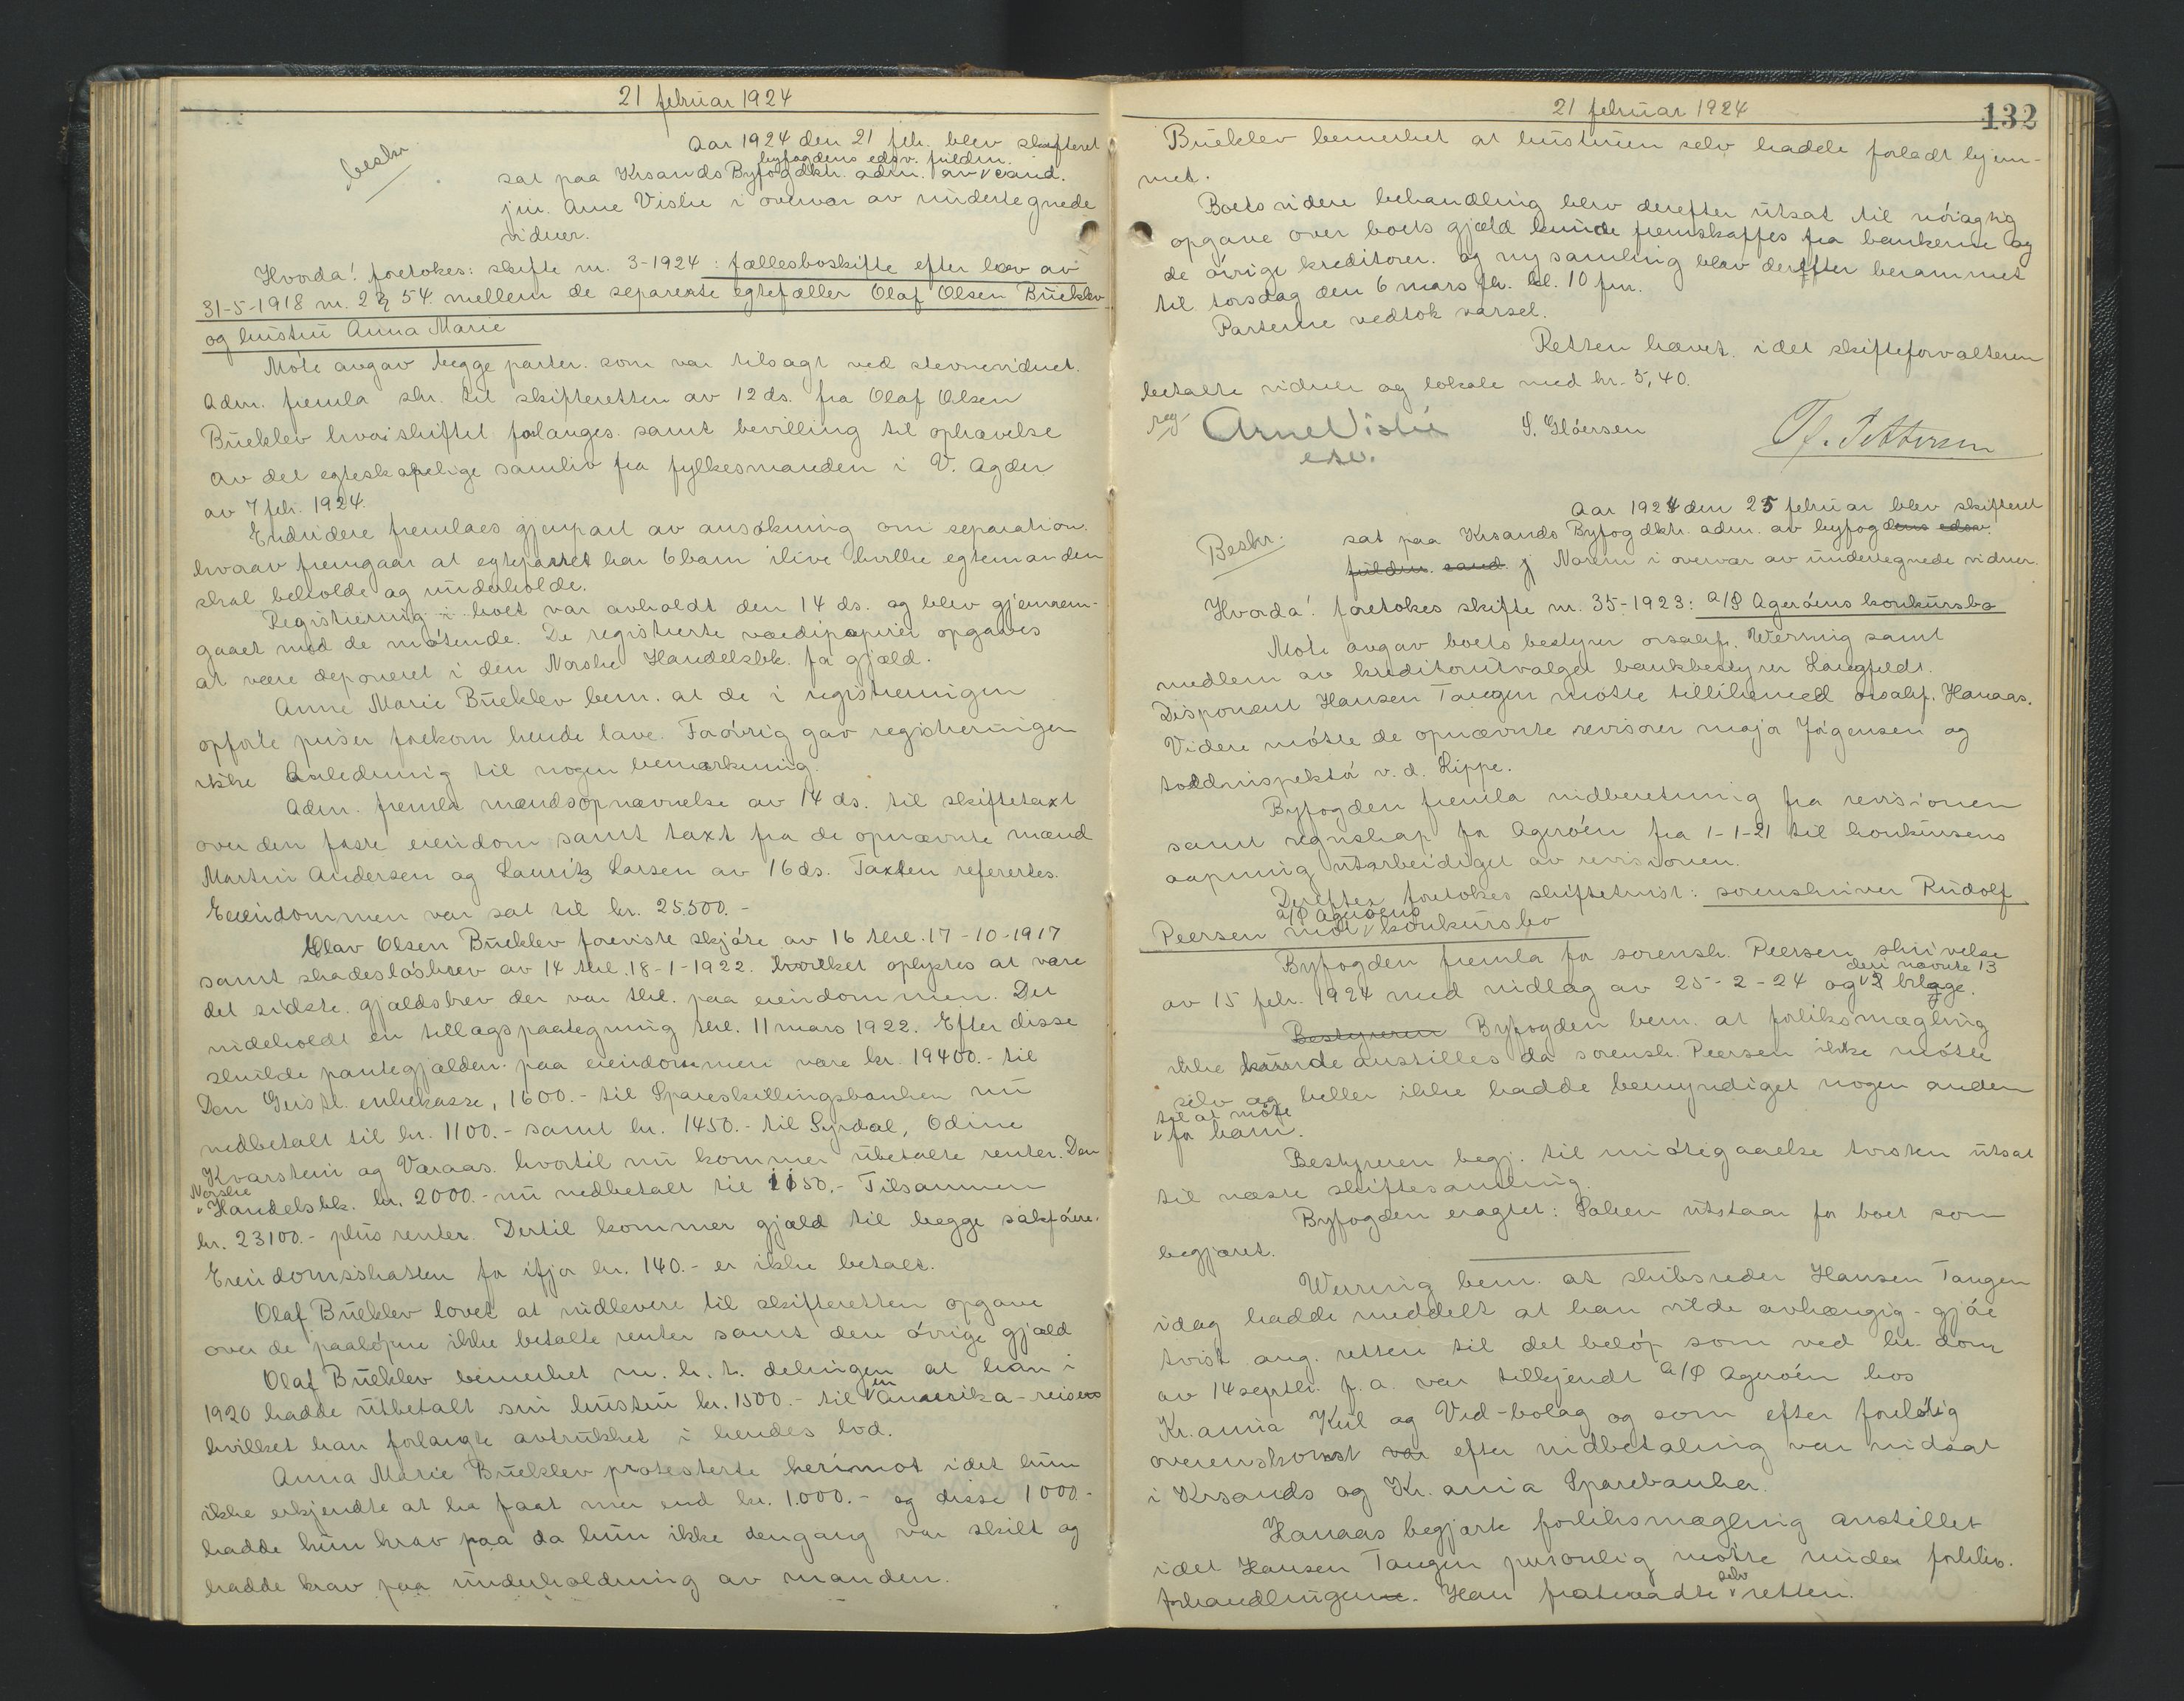 21 februar 1924
beskr.
Aar 1924 den 21 feb. blev skifteret
byfogdens edsv. fuldm.
sat paa Krsands Byfogdktr. adm. av cand.
jur. Arne Vislie i overvær av undertegnede
vidner.
Hvorda! foretokes: skifte nr. 3-1924: fællesboskifte efter lov av
31-5-1918 nr. 2 § 54 mellem de separerte egtefæller Olaf Olsen Bueklev
og hustru Anna Marie
Møte avgav begge parter. som var tilsagt ved stevnevidnet.
Adm. fremla skr. til skifteretten av 12 ds. fra Olaf Olsen
Bueklev hvori skiftet forlanges samt bevilling til ophævelse
av det egteskapelige samliv fra fylkesmanden i V. Agder
av 7 feb. 1924.
Endvidere fremlaes gjenpart av ansøkning om separation.
hvorav fremgaar at egteparret har 6 barn ilive hvilke egtemanden
skal beholde og underholde.
Registrering i boet var avholdt den 14 ds. og blev gjennem-
gaaet med de møtende. De registrerte værdipapirer opgaves
at være deponeret i den Norske Handelsbk. for gjæld.
Anne Marie Bueklev bem. at de i registreringen
opførte priser forekom hende lave. Forøvrig gav registreringen
ikke Anledning til nogen bemærkning.
Adm. fremla mændsopnævnelse av 14 ds. til skiftetaxt
over den faste eiendom samt taxt fra de opnævnte mænd
Martin Andersen og Lauritz Larsen av 16 ds. Taxten referertes.
Eeiendommen var sat til kr. 25.500.-
Olav Olsen Bueklev foreviste skjøte av 16 thl. 17-10-1917
samt skadesløsbrev av 14 thl. 18-1-1922. hvilket oplystes at være
det sidste gjældsbrev der var thl. paa eiendommen. Det
indeholdt en tillagspaategning thl. 11 mars 1922. Efter disse
skulde pantegjælden paa eiendommen være kr. 19400.- til
Den Geistl. enkekasse, 1600.- til Spareskillingsbanken nu
nedbetalt til kr. 1100.- samt kr. 1450.- til Syrdal, Odine
Kvarstein og Varaas. hvortil nu kommer ubetalte renter. Den
Norske
Handelsbk. kr. 2000.- nu nedbetalt til 1150.- Tilsammen
kr. 23100.- plus renter. Dertil kommer gjæld til begge sakførere.
Eeiendomsskatten for ifjor kr. 140.- er ikke betalt.
Olaf Bueklev lovet at indlevere til skifteretten opgave
over de paaløpne ikke betalte renter samt den øvrige gjæld
Olaf Bueklev bemerket m. h. t. delingen at han i
en
1920 hadde utbetalt sin hustru kr. 1500.- til Amerika-reise
hvilket han forlangte avtrukket i hendes lod.
Anna Marie Bueklev protesterte herimot idet hun
ikke erkjendte at ha faat mer end kr. 1.000.- og disse 1000.-
hadde hun krav paa da hun ikke dengang var skilt og
hadde krav paa underholdning av manden.
21 februar 1924
132
Bueklev bemerket at hustruen selv hadde forladt hjem-
met.
Boets videre behandling blev derefter utsat til nøiagtig
opgave over boets gjæld kunde fremskaffes fra bankerne og
de øvrige kreditorer. og ny samling blev derefter berammet
til torsdag den 6 mars fk. kl. 10 fm.
Parterne vedtok varsel.
Retten hævet. idet skifteforvalteren
betalte vidner og lokale med kr. 5,40.
Arne Vislie
esv.
S. Gløersen
Tf. Pettersen
Aar 1924 den 25 februar blev skifteret
Beskr.
sat paa Krsands Byfogdktr. adm. av byfogdens edsv.
fuldm. cand. j Narem i overvær av undertegnede vidner.
Hvorda! foretokes skifte nr. 35-1923: A/S Agerøens konkursbo
Møte avgav boets bestyrer orsakf. Werring samt
medlem av kreditorutvalget bankbestyrer Langfeldt.
Disponent Hansen Tangen møtte tillikemed orsakf. Hanaas.
Videre møtte de opnævnte revisorer major Jørgensen og
toldinspektør v. d. Lippe.
Byfogden fremla indberetning fra revisionen
samt regnskap for Agerøen fra 1-1-21 til konkursens
aapning utarbeidiget av revisionen.
Derefter foretokes skiftetvist: sorenskriver Rudolf
A/S Agerøens
Peersen mot konkursbo
Byfogden fremla for sorensk. Peersen skrivelse
den nævnte 13
av 15 feb. 1924 med indlæg av 25-2-24 og bilage.
Bestyreren Byfogden bem. at forliksmægling
ikke kunde anstilles da sorensk. Peersen ikke møtte
selv og heller ikke hadde bemyndiget nogen anden
til at møte
for ham.
Bestyreren begj. til imøtegaaelse tvisten utsat
til næste skiftesamling.
Byfogden eragtet: Saken utstaar for boet som
begjæret.
Werring bem. at skibsreder Hansen Tangen
idag hadde meddelt at han vilde avhængig-gjøre
tvist ang. retten til det beløp som ved hr. dom
av 14 septbr. f. a. var tilkjendt A/S Agerøen hos
Kr.ania Kul og Ved-bolag og som efter foreløbig
overenskomst var efter indbetaling var indsat
i Krsands og Kr.ania Sparebanker.
Hanaas begjærte forliksmægling anstillet
idet Hansen Tangen personlig møtte under forliks.
selv
forhandlingene. Han fratraadte retten.